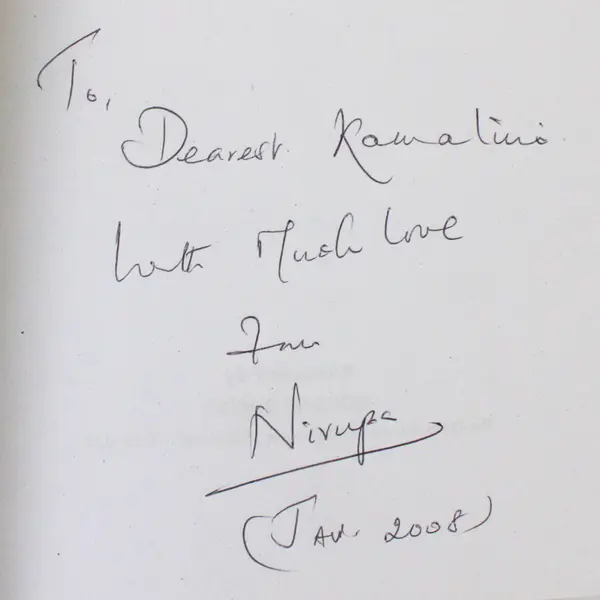 To,
Dearest Kamalini
With Much Love
From
Nirupa
(Jan. 2008)